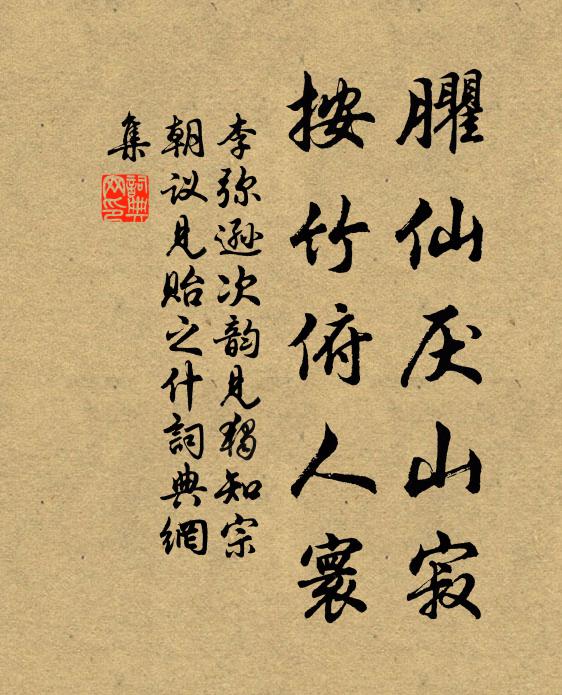 臞仙厌山寂
按竹俯人寰
李弥遜次韵见獨知宗
朝议见贻之什詞典網
集
詞典网印